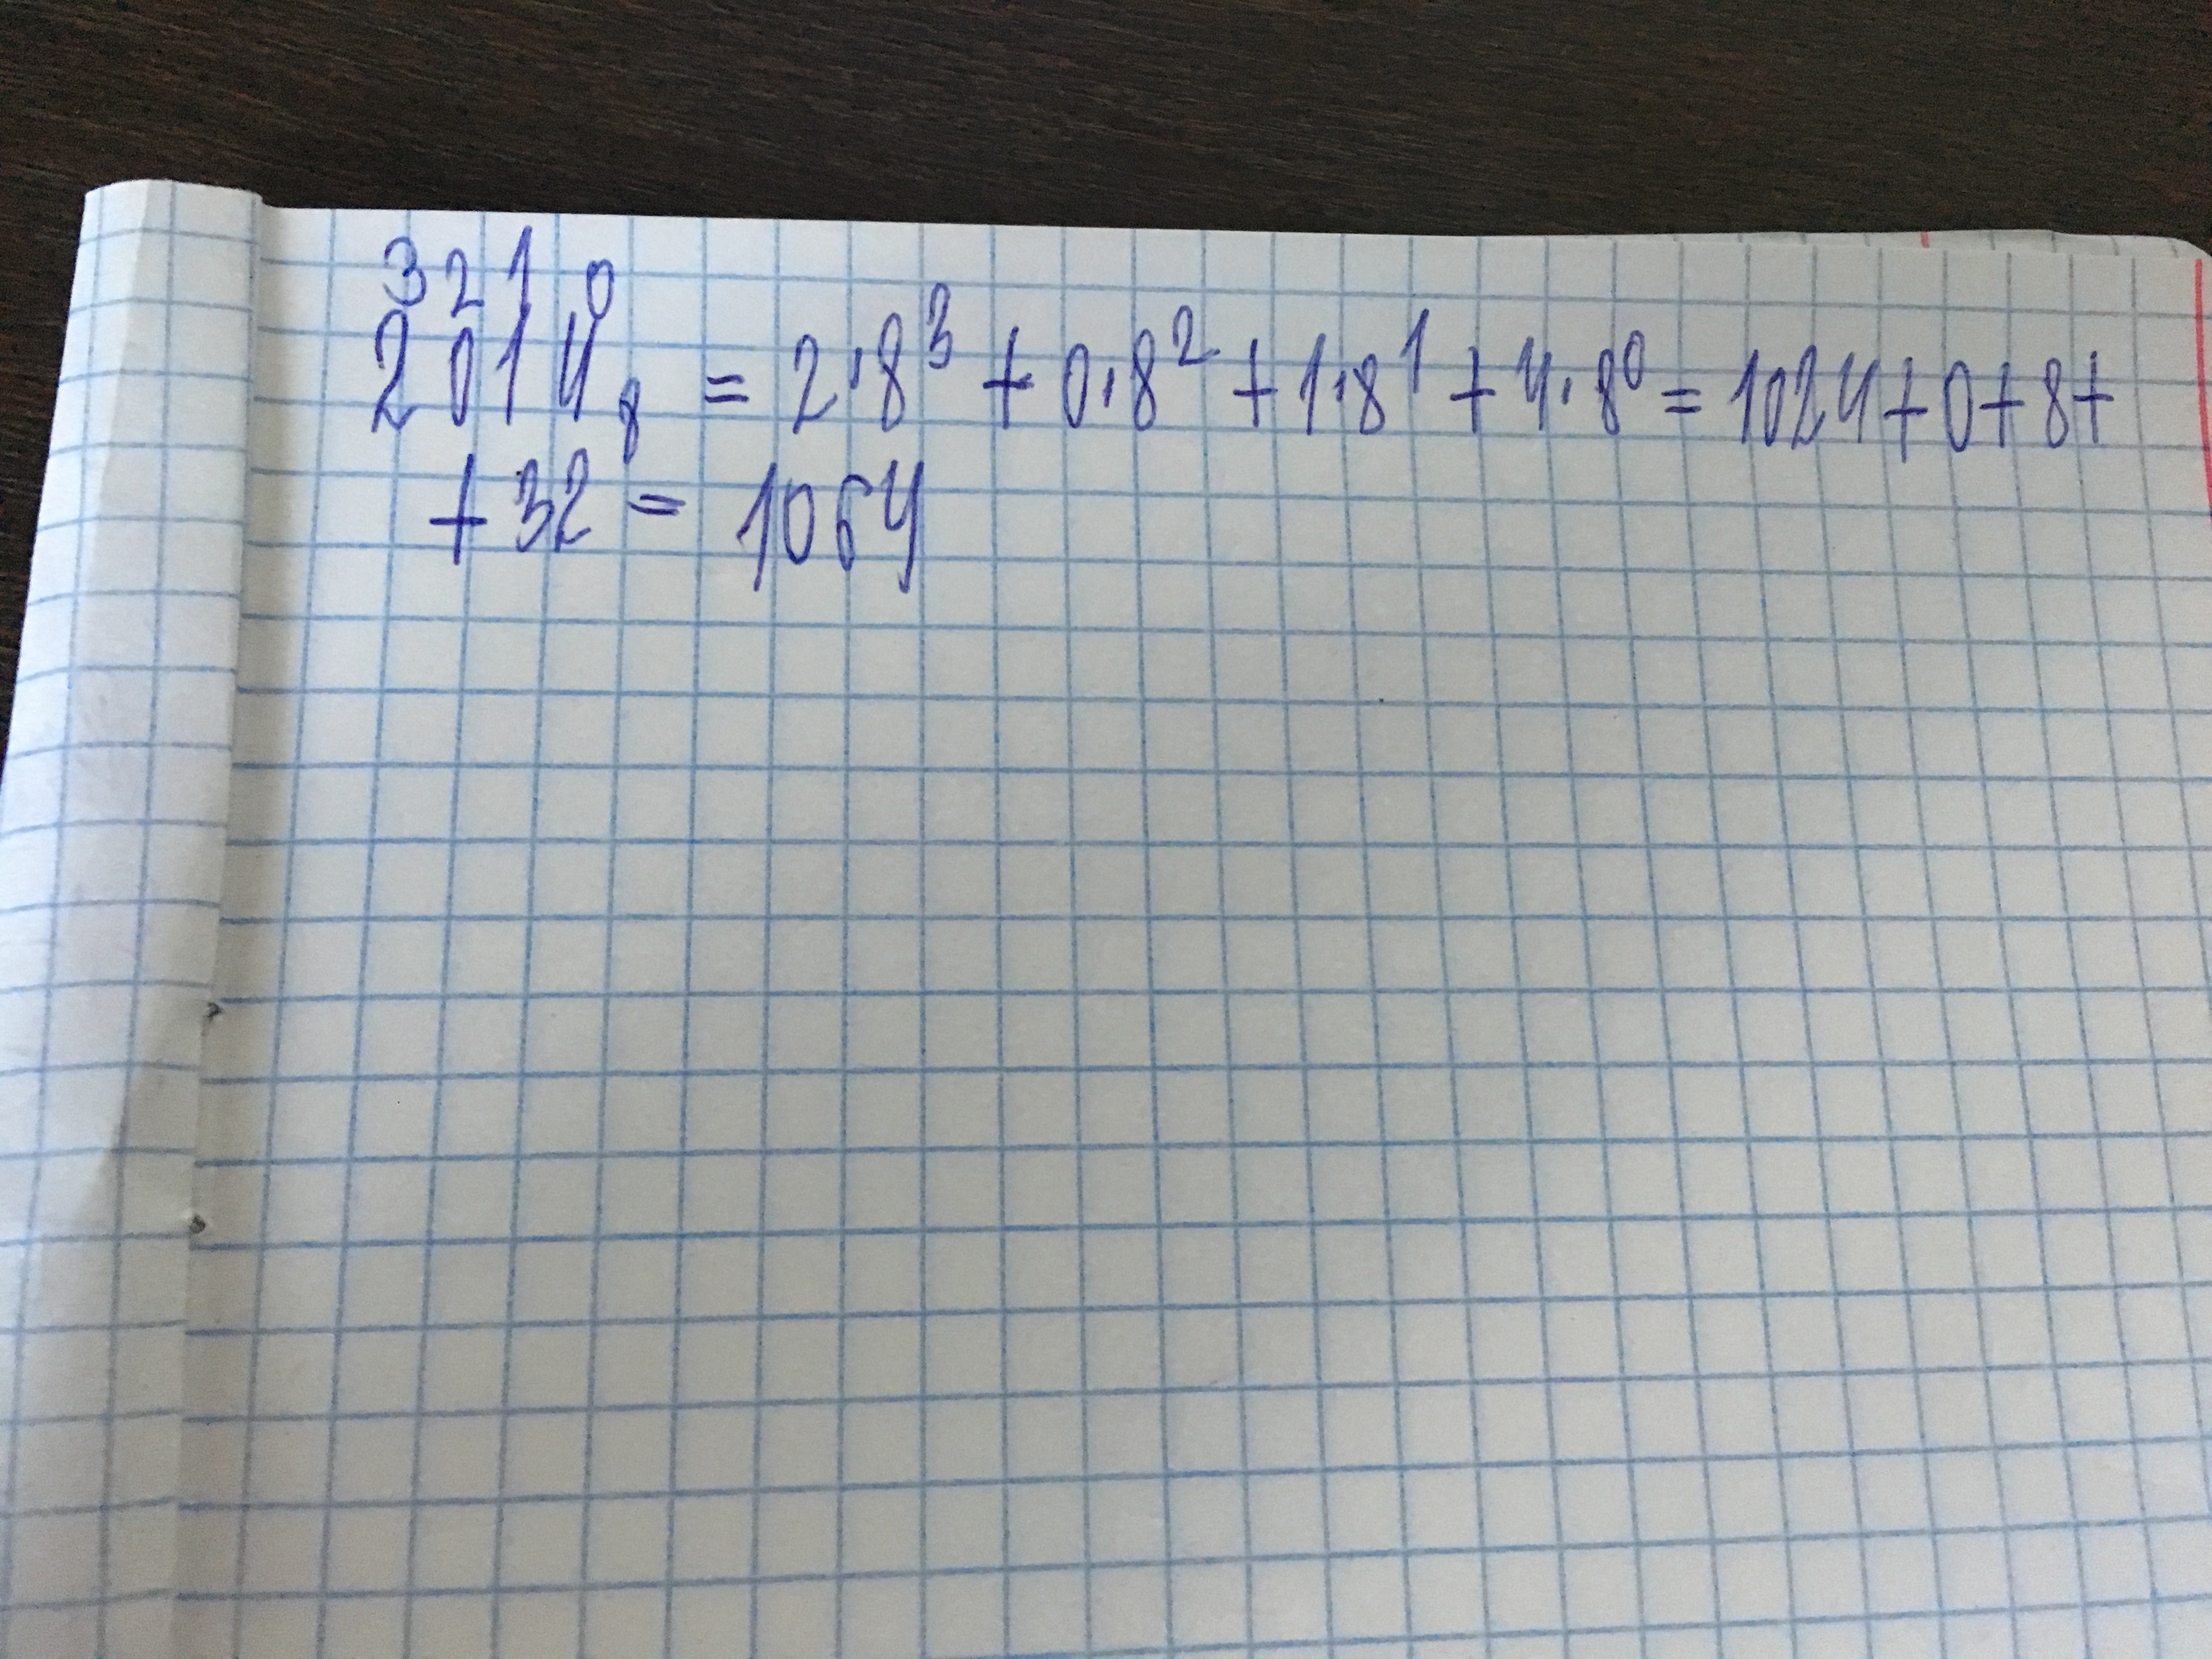 3 2 1 0
2014₈ = 2·8³ + 0·8² + 1·8¹ + 4·8⁰ = 1024 + 0 + 8 +
+ 32 = 1064